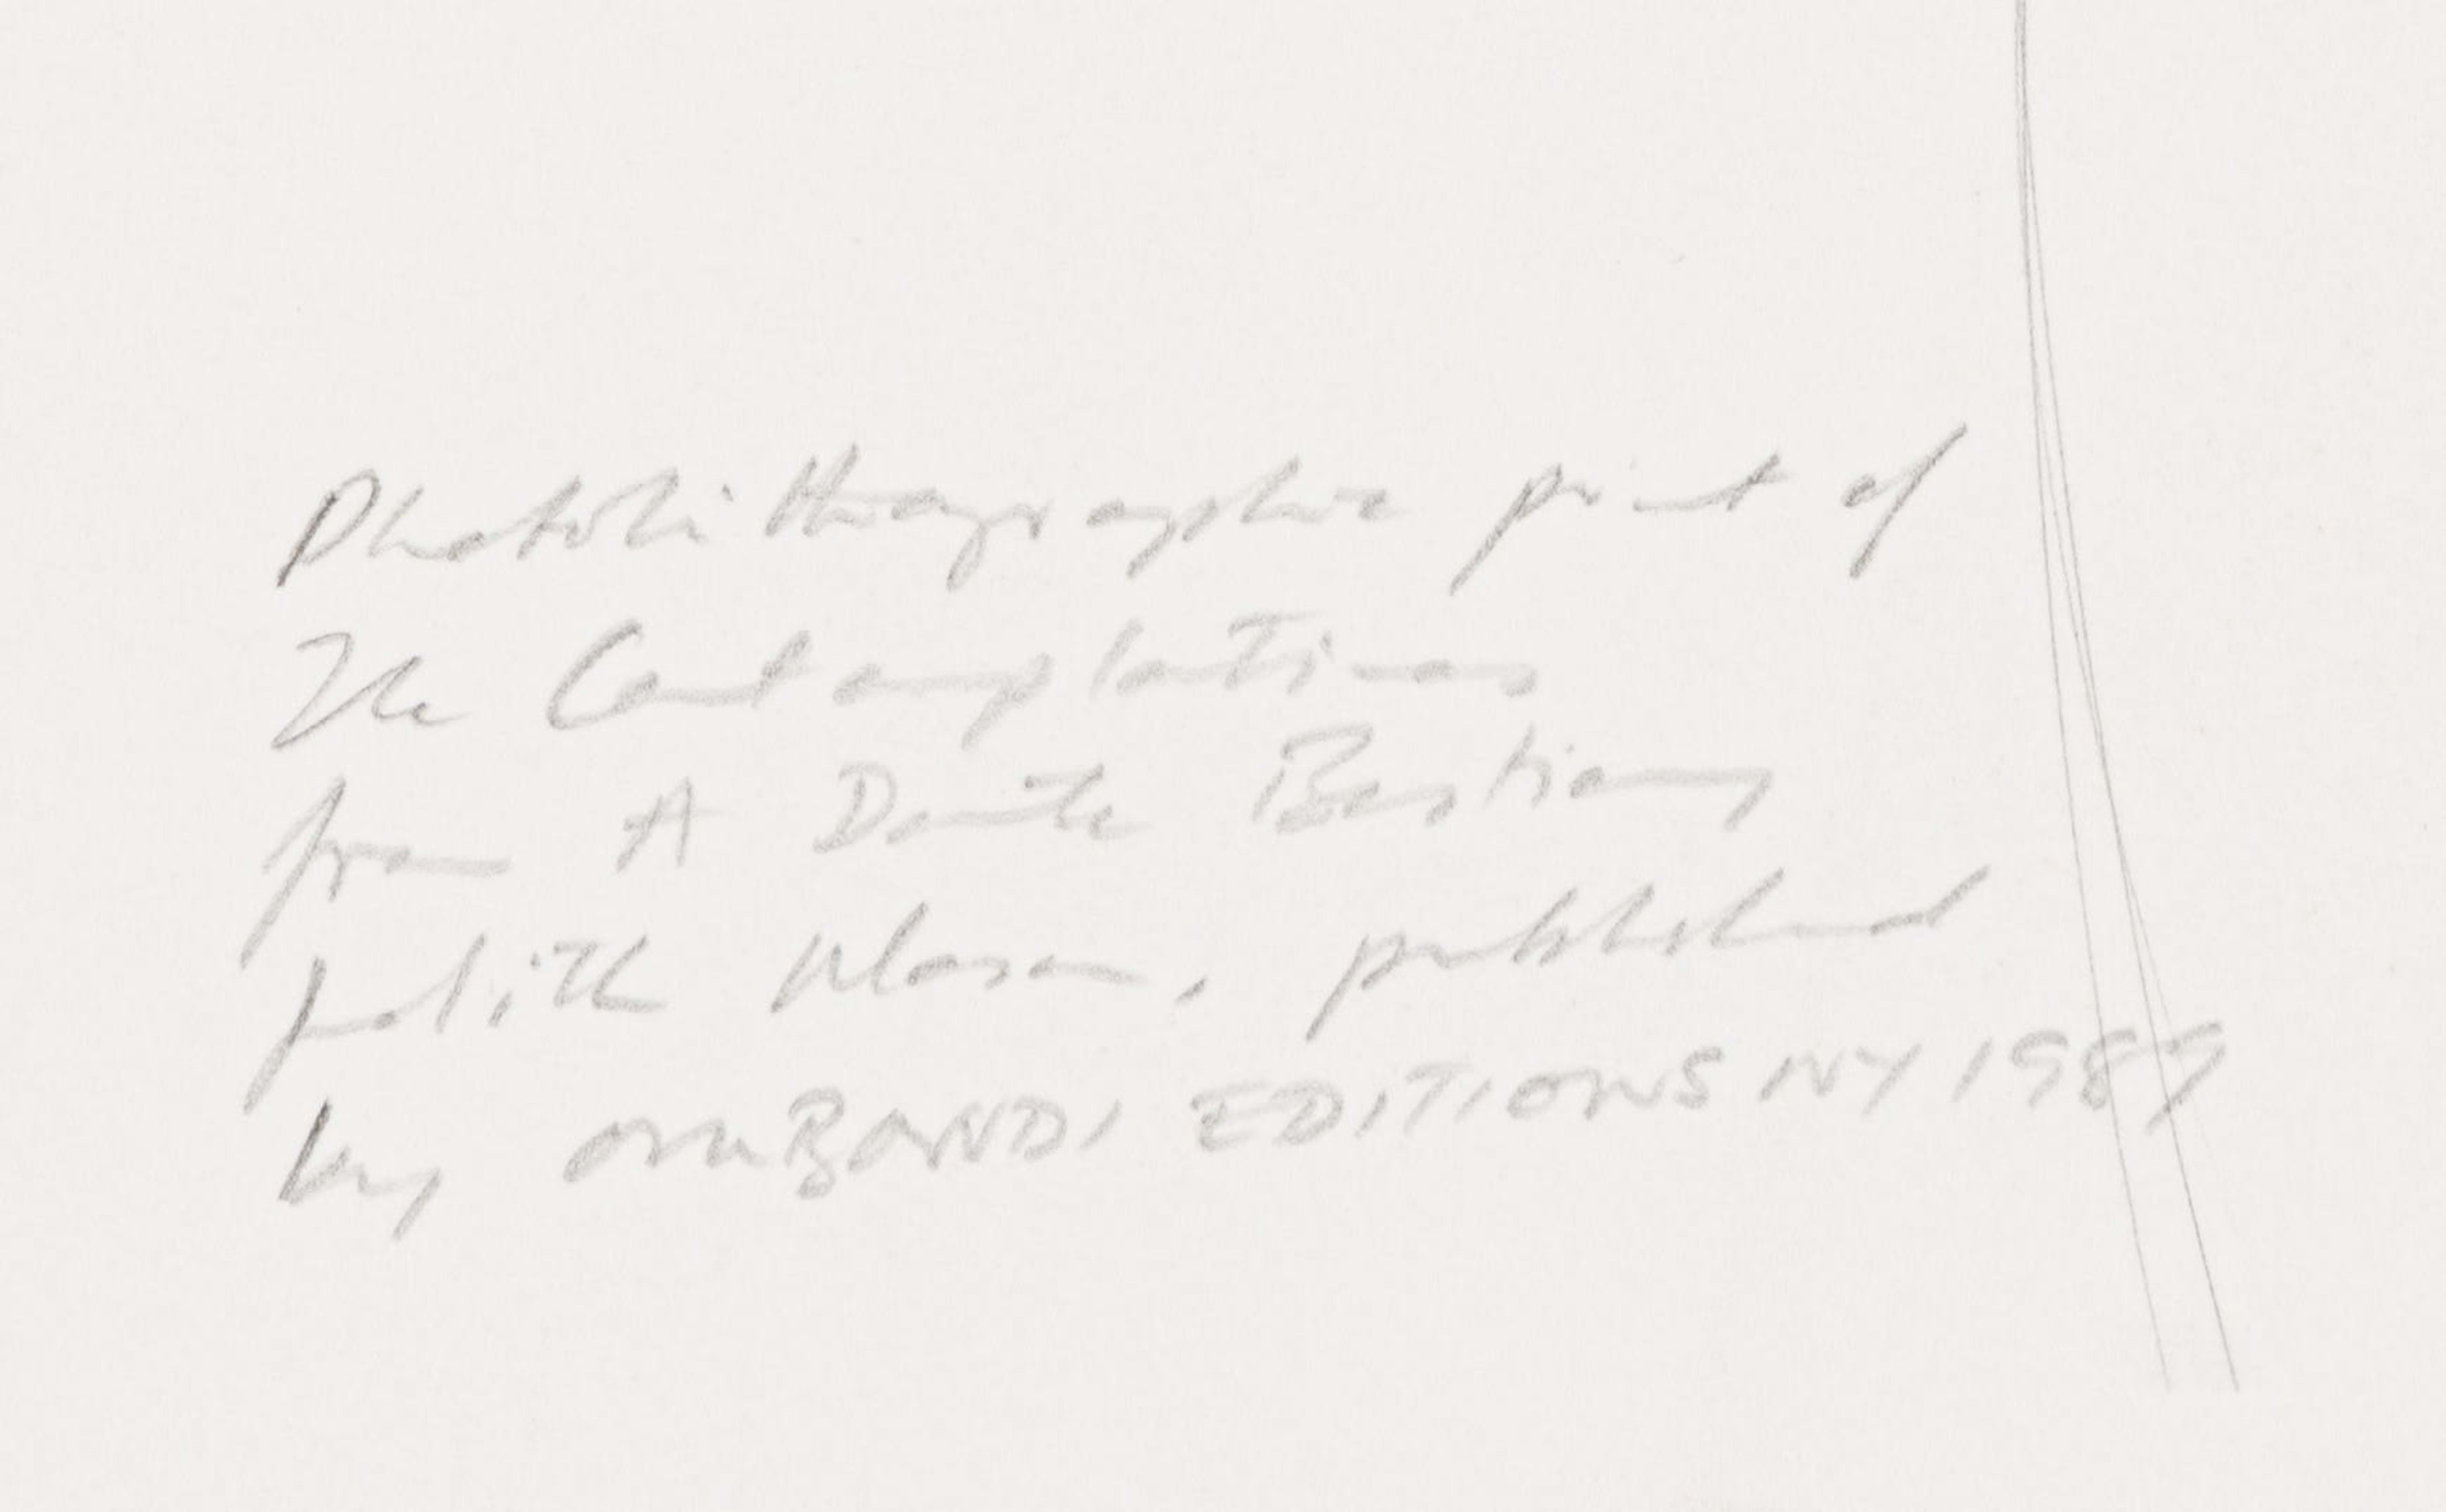 Photolithographic print of
The Contemplatives
from A Dante Bestiary
Judith Mason, published
by OMBONDI EDITIONS NY 1989